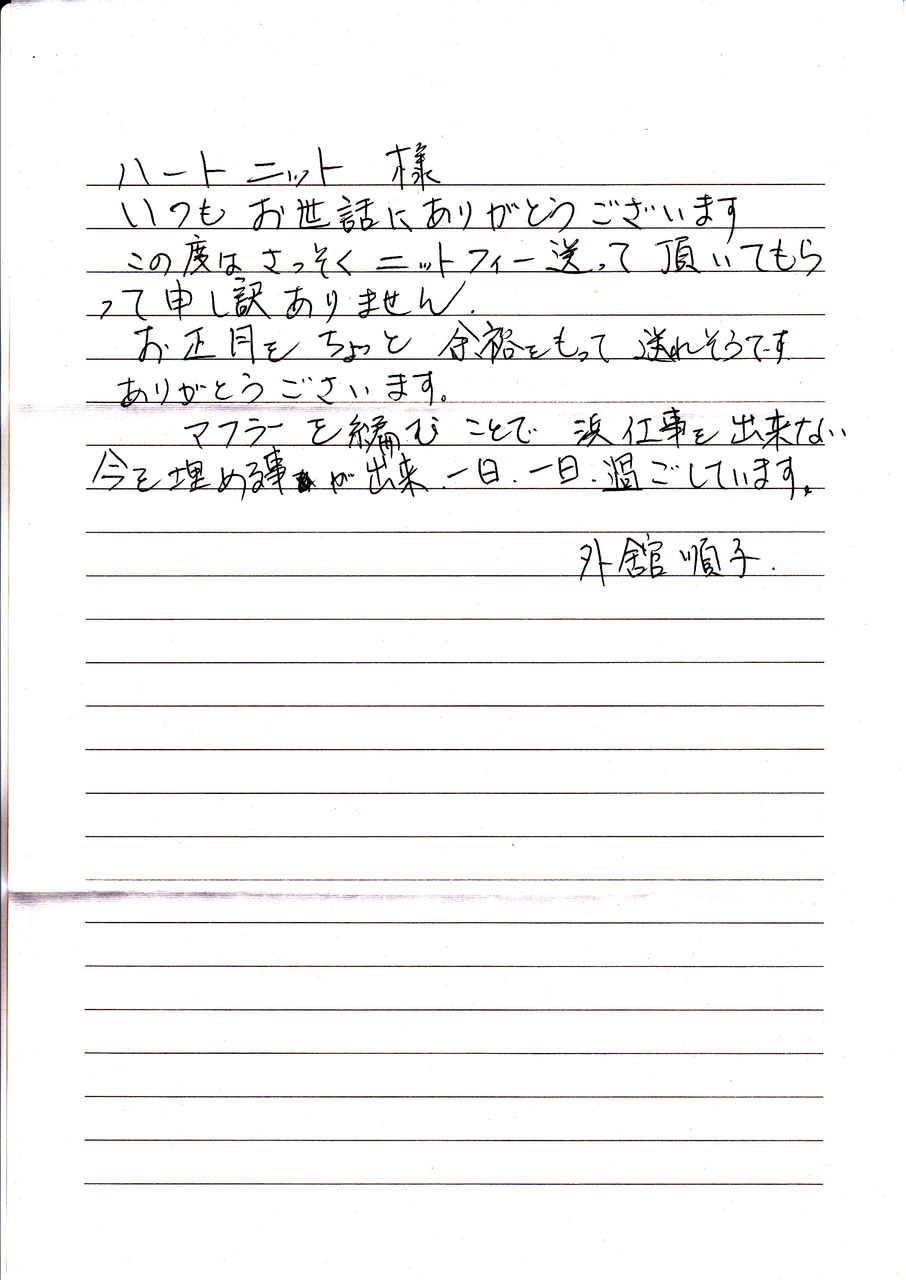 ハートニット 様
いつもお世話にありがとうございます
この度はさっそくニットフィー送って頂いてもら
って申し訳ありません.
お正月をちょっと余裕をもって送れそうです
ありがとうございます。
マフラーを編むことで浜仕事を出来ない
今を埋める事が出来.一日.一日.過ごしています。
外舘順子.